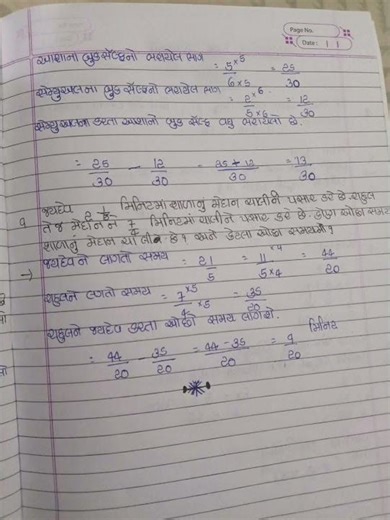 Page No.
Date: 1 1
આશાના બુક સેલ્ફનો ભરાયેલ ભાગ
= 5 ×5 / 6×5 = 25/30
સેમ્યુઅલના બુક સેલ્ફનો ભરાયેલ ભાગ
= 2 ×6 / 5×6 = 12/30
સેમ્યુઅલના કરતા આશાનો બુક સેલ્ફ વધુ ભરાયેલો છે.
= 25/30 - 12/30 = 25 + 12/30 = 13/30
9 જયદેવ 2 1/5 મિનિટમાં શાળાનું મેદાન ચાલીને પસાર કરે છે. રાહુલ
તે જ મેદાન ને 7/4 મિનિટમાં ચાલીને પસાર કરે છે. કોણ ઓછા સમયમાં
શાળાનું મેદાન ચાલી છે? અને કેટલા ઓછા સમયમાં?
→ જયદેવને લાગતો સમય = 21/5 = 11 ×4 / 5×4 = 44/20
રાહુલને લગતો સમય = 7 ×5 / 4 ×5 = 35/20
રાહુલને જયદેવ કરતા ઓછો સમય લાગશે.
= 44/20 - 35/20 = 44-35/20 = 9/20 મિનિટ